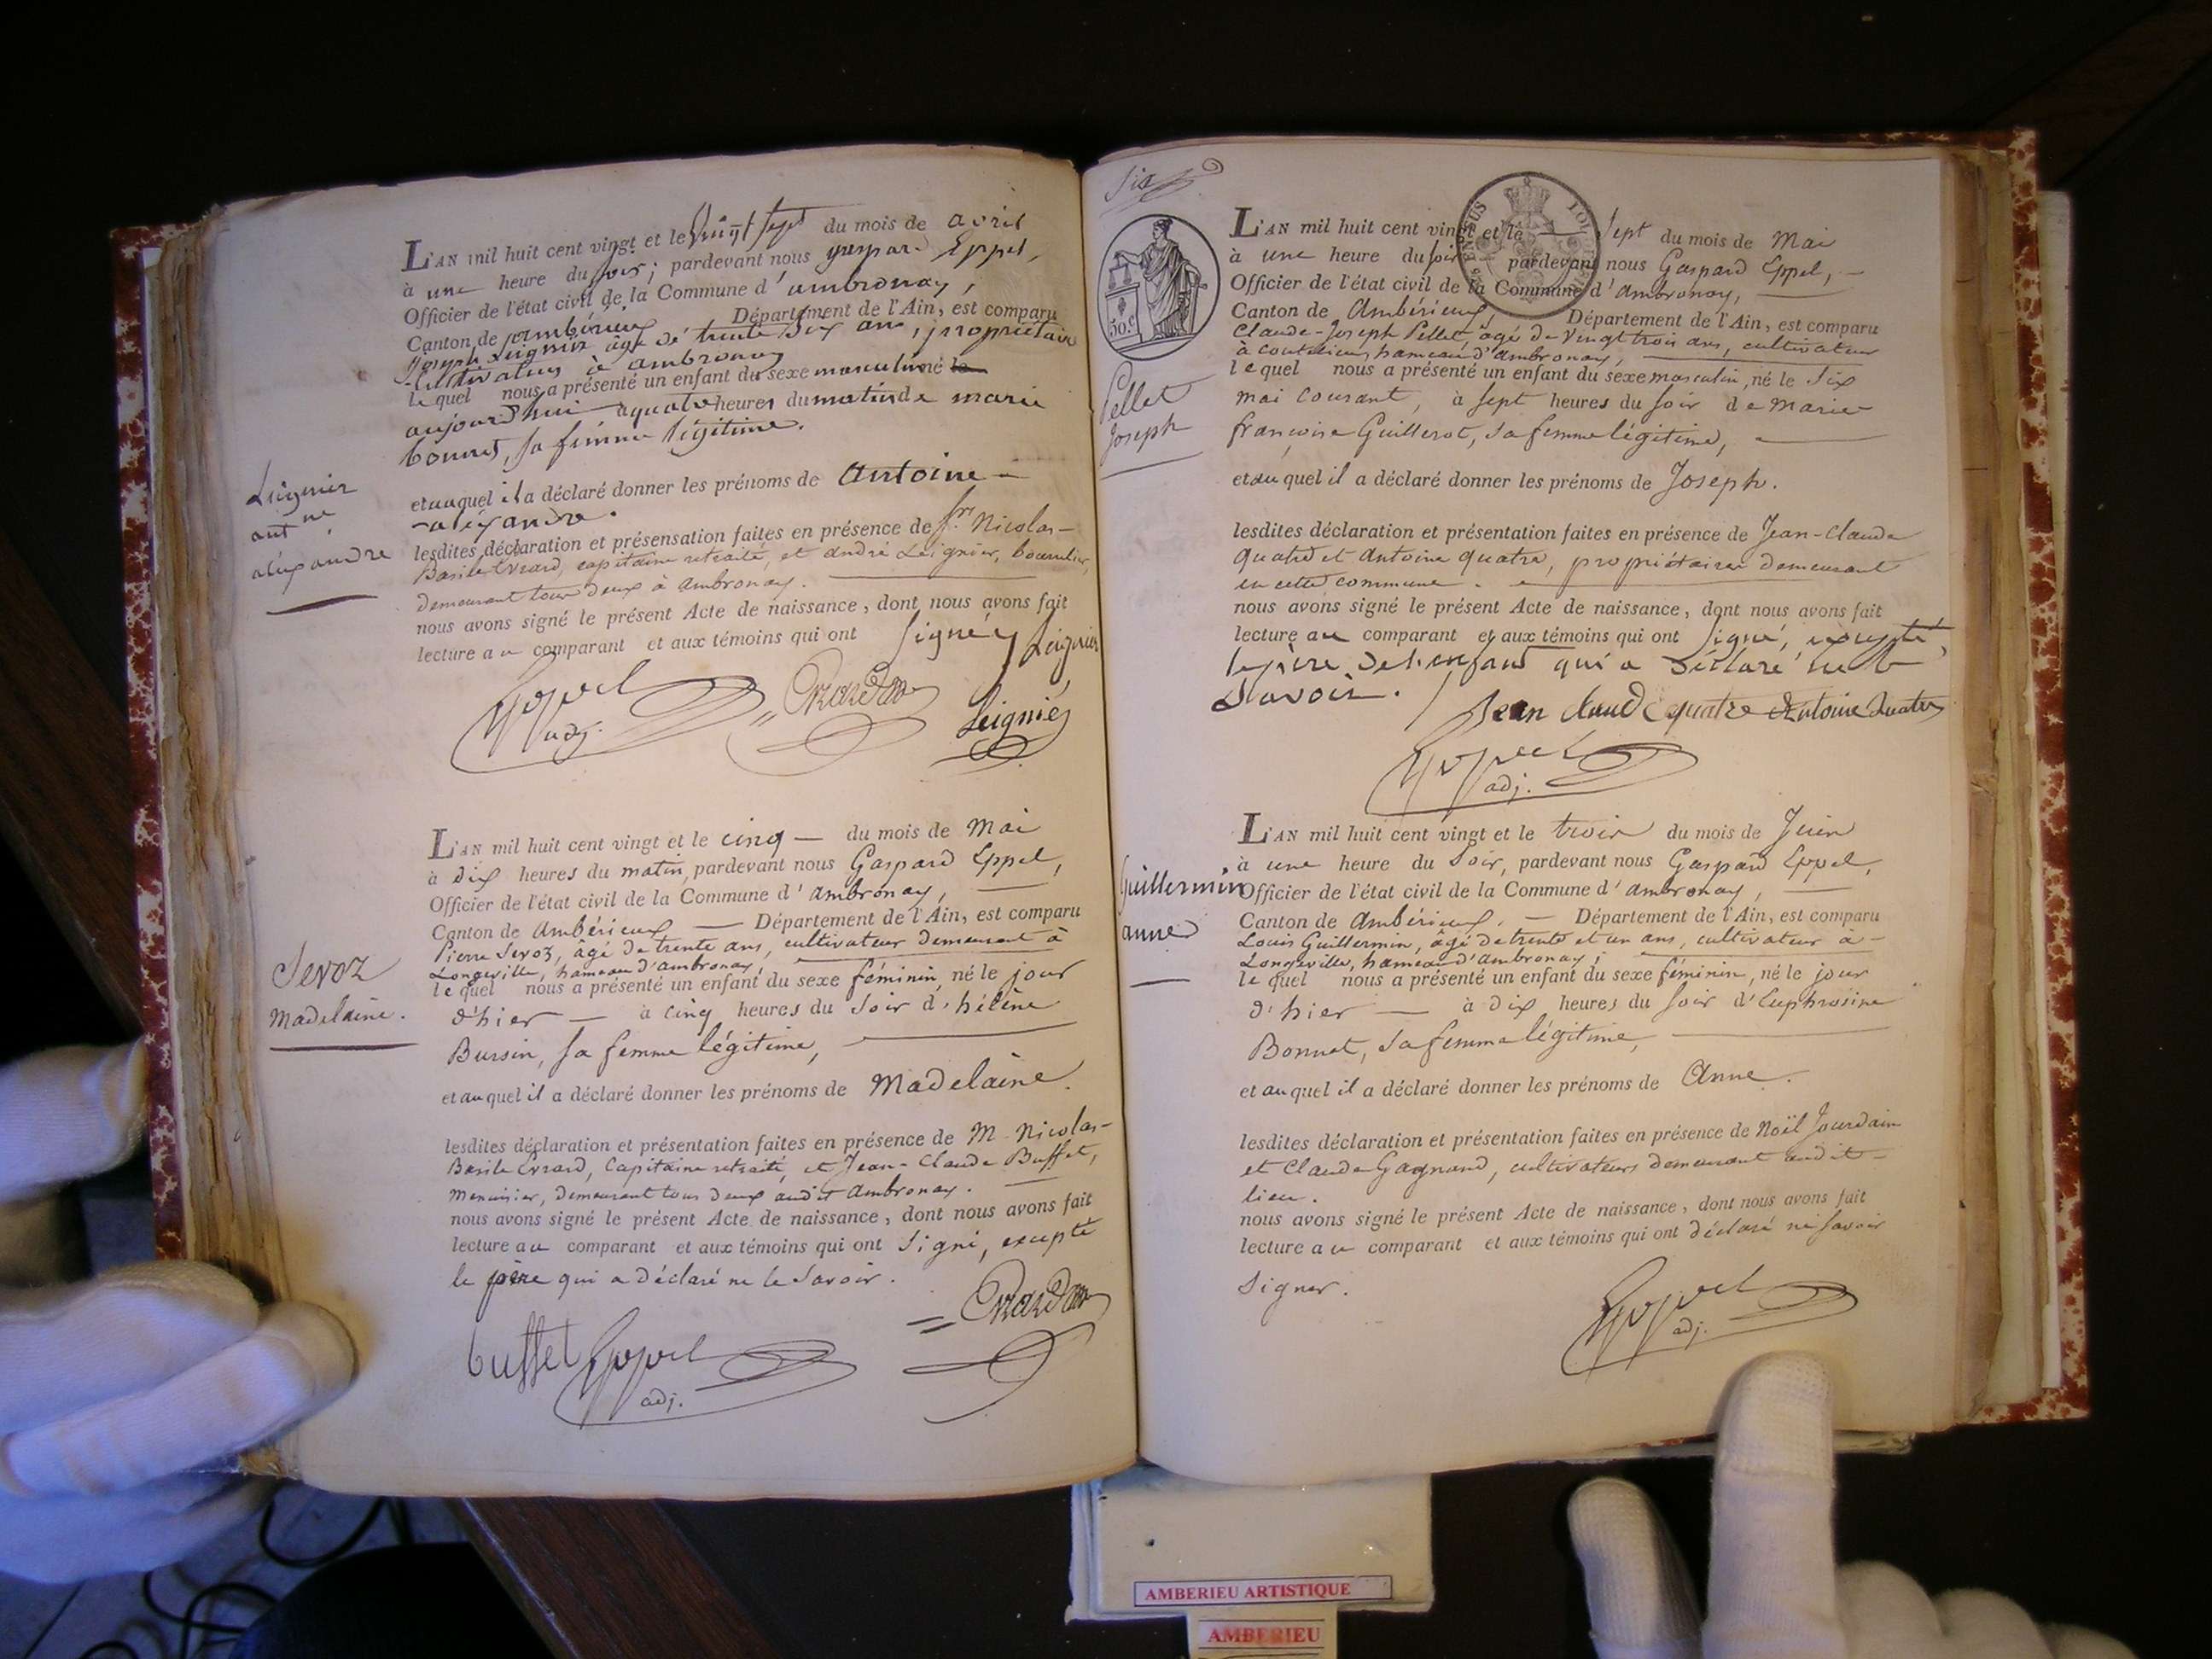 L'AN mil huit cent vingt et le vingt sept du mois de avril
à une heure du soir; pardevant nous gaspard Eppel,
Officier de l'état civil de la Commune d'ambronay,
Canton de ambérieux Département de l'Ain, est comparu
joseph Leignier âgé de trente six ans, propriétaire
cultivateur à ambronay
lequel nous a présenté un enfant du sexe masculin né le
aujourd'hui à quatre heures du matin de marie
bonnet, sa femme légitime.
Leignier
antne
aléxandre
et auquel il a déclaré donner les prénoms de Antoine-
-aléxandre.
lesdites déclaration et présensation faites en présence de Sr. Nicolas-
Basile Evrard, capitaine retraité, et andré Leignier, bourrelier,
demeurant tous deux à ambronay.
nous avons signé le présent Acte de naissance, dont nous avons fait
lecture au comparant et aux témoins qui ont signé
Leignier
Eppel Evrard
adj. Leignier
L'AN mil huit cent vingt et le cinq du mois de Mai
à dix heures du matin, pardevant nous Gaspard Eppel,
Officier de l'état civil de la Commune d'ambronay,
Canton de Ambérieux Département de l'Ain, est comparu
Pierre Sevoz, âgé de trente ans, cultivateur demeurant à
Longeville, hameau d'ambronay,
lequel nous a présenté un enfant du sexe féminin, né le jour
d'hier à cinq heures du soir d'hélène
Bussin, sa femme légitime,
Sevoz
Madelaine.
et auquel il a déclaré donner les prénoms de Madelaine.
lesdites déclaration et présentation faites en présence de M. Nicolas-
Basile Evrard, Capitaine retraité, et Jean-Claude Buffet,
menuisier, demeurant tous deux audit ambronay.
nous avons signé le présent Acte de naissance, dont nous avons fait
lecture au comparant et aux témoins qui ont signé, excepté
le père qui a déclaré ne le savoir.
Evrard
buffet Eppel
adj.
Six
L'AN mil huit cent vingt et le Sept du mois de Mai
à une heure du soir pardevant nous Gaspard Eppel,
Officier de l'état civil de la Commune d'ambronay,
50.c
Canton de Ambérieux, Département de l'Ain, est comparu
Claude-Joseph Pellet, âgé de vingt trois ans, cultivateur
à coutelieu, hameau d'ambronay,
lequel nous a présenté un enfant du sexe masculin, né le Six
mai courant, à sept heures du soir de marie-
françoise Guillerot, sa femme légitime,
Pellet
Joseph
et auquel il a déclaré donner les prénoms de Joseph.
lesdites déclaration et présentation faites en présence de Jean-Claude
quatre et Antoine quatre, propriétaires demeurant
en cette commune.
nous avons signé le présent Acte de naissance, dont nous avons fait
lecture au comparant et aux témoins qui ont signé, excepté
le père de l'enfant qui a déclaré ne le
savoir.
Jean claude quatre Antoine Quatre
Eppel
adj.
L'AN mil huit cent vingt et le trois du mois de Juin
à une heure du soir, pardevant nous Gaspard Eppel,
Guillermin
anne
Officier de l'état civil de la Commune d'ambronay,
Canton de Ambérieux. Département de l'Ain, est comparu
Louis Guillermin, âgé de trente et un ans, cultivateur à
Longeville, hameau d'ambronay,
lequel nous a présenté un enfant du sexe féminin, né le jour
d'hier à dix heures du soir d'Euphrosine
Bonnet, sa femme légitime,
et auquel il a déclaré donner les prénoms de Anne.
lesdites déclaration et présentation faites en présence de Noël Jourdain
et Claude Gagnand, cultivateurs demeurant audit
lieu.
nous avons signé le présent Acte de naissance, dont nous avons fait
lecture au comparant et aux témoins qui ont déclaré ne savoir
signer.
Eppel
adj.
AMBERIEU ARTISTIQUE
AMBERIEU